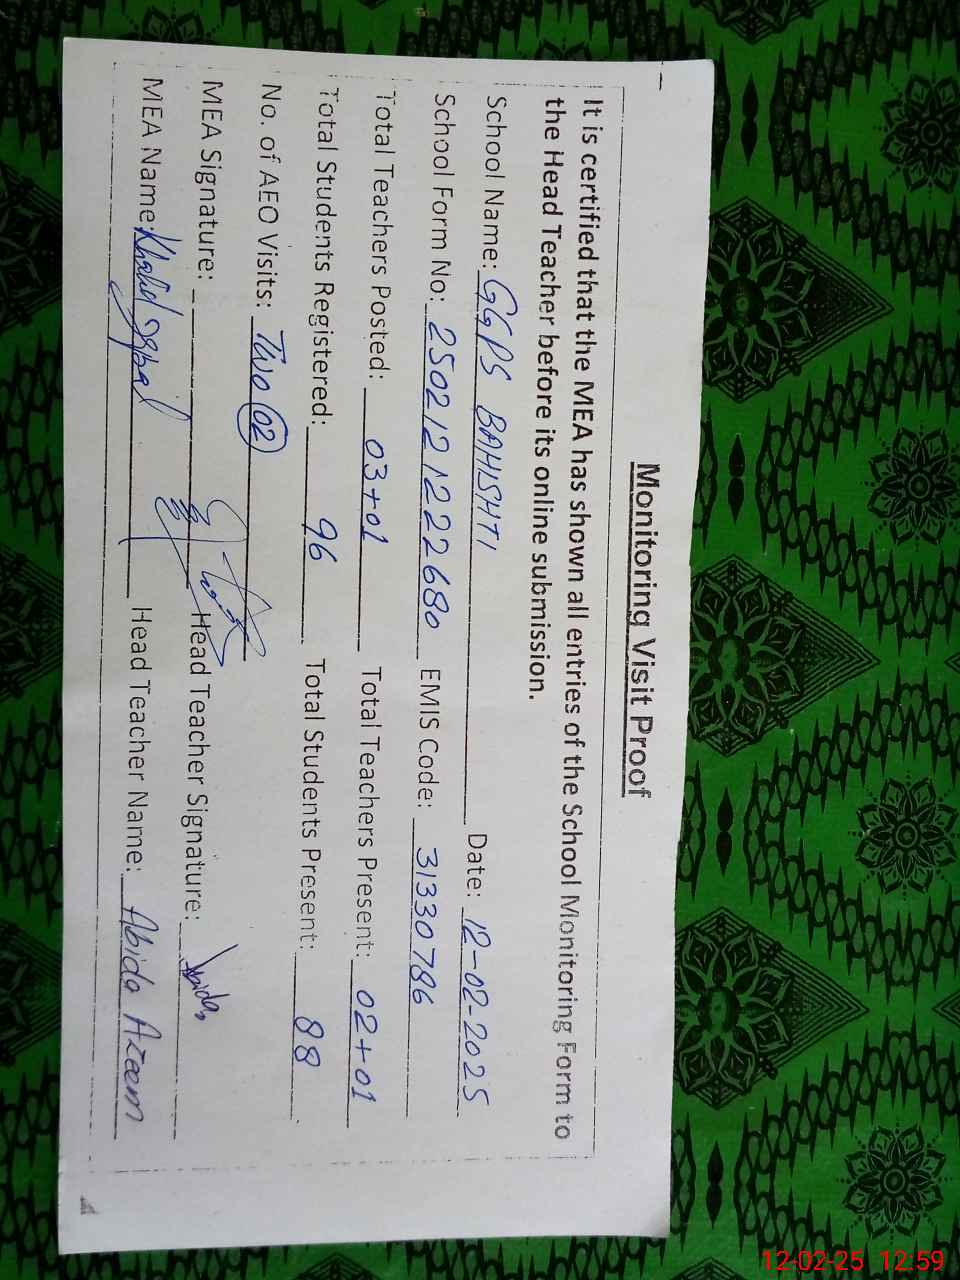 Monitoring Visit Proof
It is certified that the MEA has shown all entries of the School Monitoring Form to
the Head Teacher before its online submission.
School Name: GGPS BAHISHTI Date: 12-02-2025
School Form No: 2502121222680 EMIS Code: 31330786
Total Teachers Posted: 03+01 Total Teachers Present: 02+01
Total Students Registered: 96 Total Students Present: 88
No. of AEO Visits: Two 02
MEA Signature: Head Teacher Signature: Abida
MEA Name: Khalid Iqbal Head Teacher Name: Abida Azeem
12-02-25 12:59